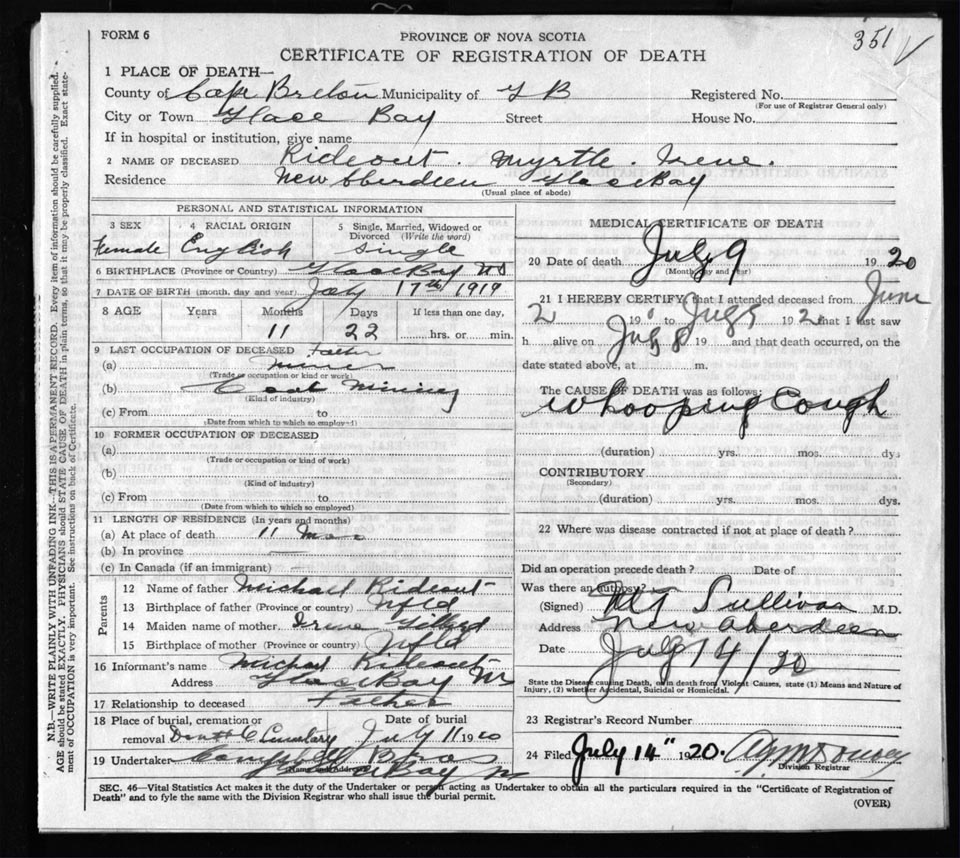 351
FORM 6
PROVINCE OF NOVA SCOTIA
CERTIFICATE OF REGISTRATION OF DEATH
1 PLACE OF DEATH—
County of Cape Breton Municipality of G B Registered No.
(For use of Registrar General only)
City or Town Glace Bay Street House No.
If in hospital or institution, give name
2 NAME OF DECEASED Rideout. Myrtle. Irene.
Residence New Aberdeen Glace Bay
(Usual place of abode)
PERSONAL AND STATISTICAL INFORMATION
3 SEX 4 RACIAL ORIGIN 5 Single, Married, Widowed or
Divorced (Write the word)
Female English Single
6 BIRTHPLACE (Province or Country) Glace Bay NS
7 DATE OF BIRTH (month, day and year) July 17th 1919
8 AGE Years Months Days If less than one day,
11 22 hrs. or min.
9 LAST OCCUPATION OF DECEASED Father
(a) Miner
(Trade or occupation or kind of work)
(b) Coal Mining
(Kind of industry)
(c) From to
(Date from which to which so employed)
10 FORMER OCCUPATION OF DECEASED
(a)
(Trade or occupation or kind of work)
(b)
(Kind of industry)
(c) From to
(Date from which to which so employed)
11 LENGTH OF RESIDENCE (In years and months)
(a) At place of death 11 mos
(b) In province
(c) In Canada (if an immigrant)
Parents
12 Name of father Michael Rideout
13 Birthplace of father (Province or country) Nfld
14 Maiden name of mother. Irene Gillard
15 Birthplace of mother (Province or country) Nfld
16 Informant's name Michael Rideout
Address Glace Bay
17 Relationship to deceased Father
18 Place of burial, cremation or Date of burial
removal Cemetary July 11 1920
19 Undertaker Bros
(Name and Address) Glace Bay
MEDICAL CERTIFICATE OF DEATH
20 Date of death July 9 1920
(Month, day and year)
21 I HEREBY CERTIFY, that I attended deceased from June
2 19 to July 9 192 that I last saw
h alive on July 8 19 and that death occurred, on the
date stated above, at m.
The CAUSE OF DEATH was as follows:
Whooping Cough
(duration) yrs. mos. dys
CONTRIBUTORY
(Secondary)
(duration) yrs. mos. dys.
22 Where was disease contracted if not at place of death?
Did an operation precede death? Date of
Was there an autopsy?
(Signed) Sullivan M.D.
Address New Aberdeen
Date July 14/20
State the Disease causing Death, or in death from Violent Causes, state (1) Means and Nature of
Injury, (2) whether Accidental, Suicidal or Homicidal.
23 Registrar's Record Number
24 Filed July 14" 1920.
Division Registrar
SEC. 46—Vital Statistics Act makes it the duty of the Undertaker or person acting as Undertaker to obtain all the particulars required in the "Certificate of Registration of
Death" and to fyle the same with the Division Registrar who shall issue the burial permit.
(OVER)
N.B.—WRITE PLAINLY WITH UNFADING INK—THIS IS A PERMANENT RECORD. Every item of information should be carefully supplied.
AGE should be stated EXACTLY. PHYSICIANS should STATE CAUSE OF DEATH in plain terms, so that it may be properly classified. Exact state-
ment of OCCUPATION is very important. See instructions on back of Certificate.